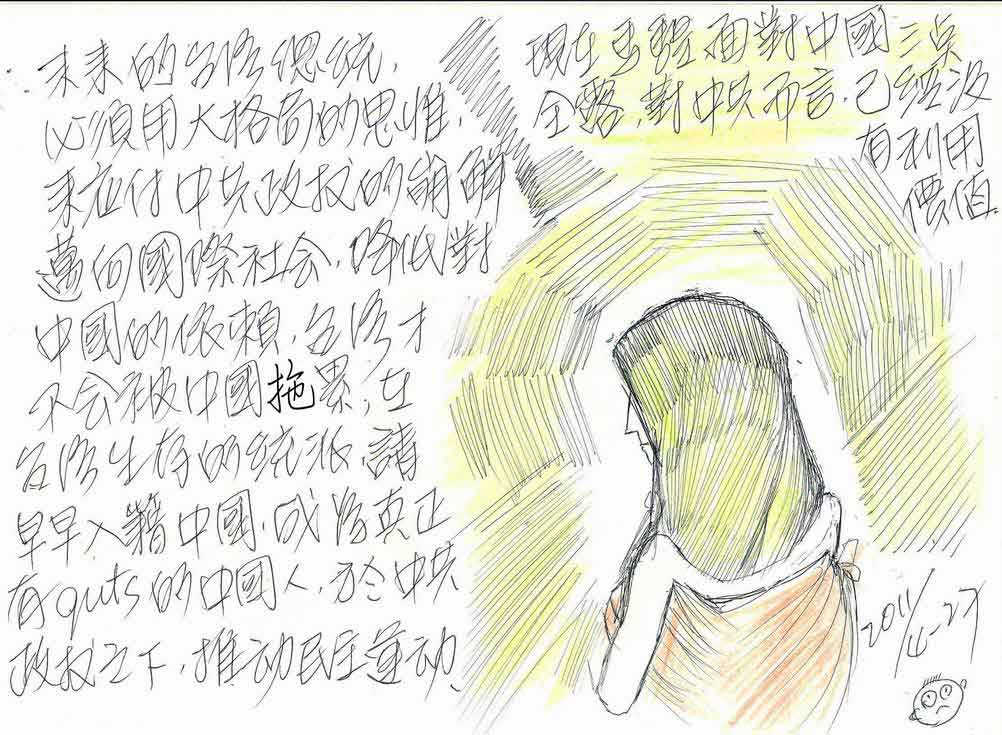 未来的台湾總統,
必須用大格局的思惟,
来应付中共政权的崩解
邁向國際社会,降低對
中國的依賴,台湾才
不会被中國拖累,在
台湾生存的统派,請
早早入籍中國,成為真正
有guts的中國人,於中共
政权之下,推动民主運动、
現在馬面對中國三点
全露,對中共而言,已經没
有利用
價值
2011/4-27